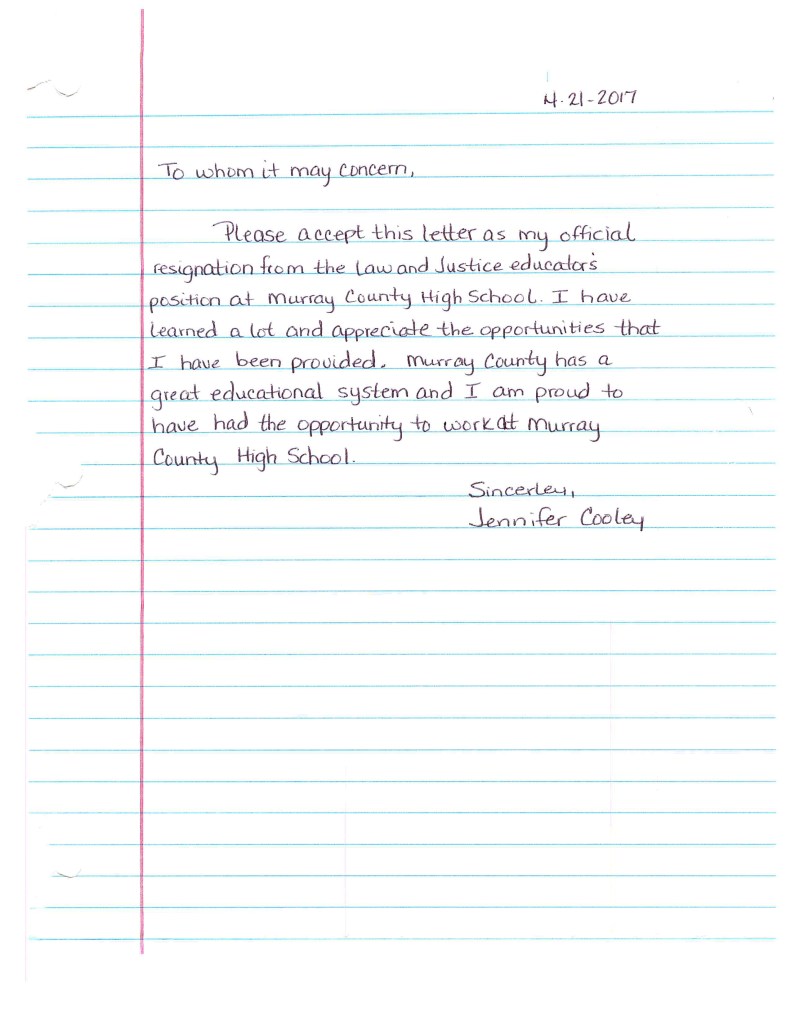 4-21-2017
To whom it may concern,
Please accept this letter as my official
resignation from the Law and Justice educator's
position at Murray County High School. I have
learned a lot and appreciate the opportunities that
I have been provided. Murray County has a
great educational system and I am proud to
have had the opportunity to work at Murray
County High School.
Sincerley,
Jennifer Cooley